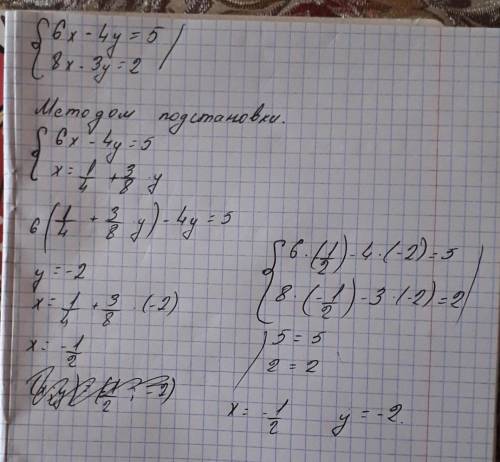 6x - 4y = 5
8x - 3y = 2
Методом подстановки.
6x - 4y = 5
x = 1/4 + 3/8 y
6(1/4 + 3/8 y) - 4y = 5
y = -2
x = 1/4 + 3/8 · (-2)
x = -1/2
6 · (1/2) - 4 · (-2) = 5
8 · (-1/2) - 3 · (-2) = 2
5 = 5
2 = 2
x = -1/2 y = -2.